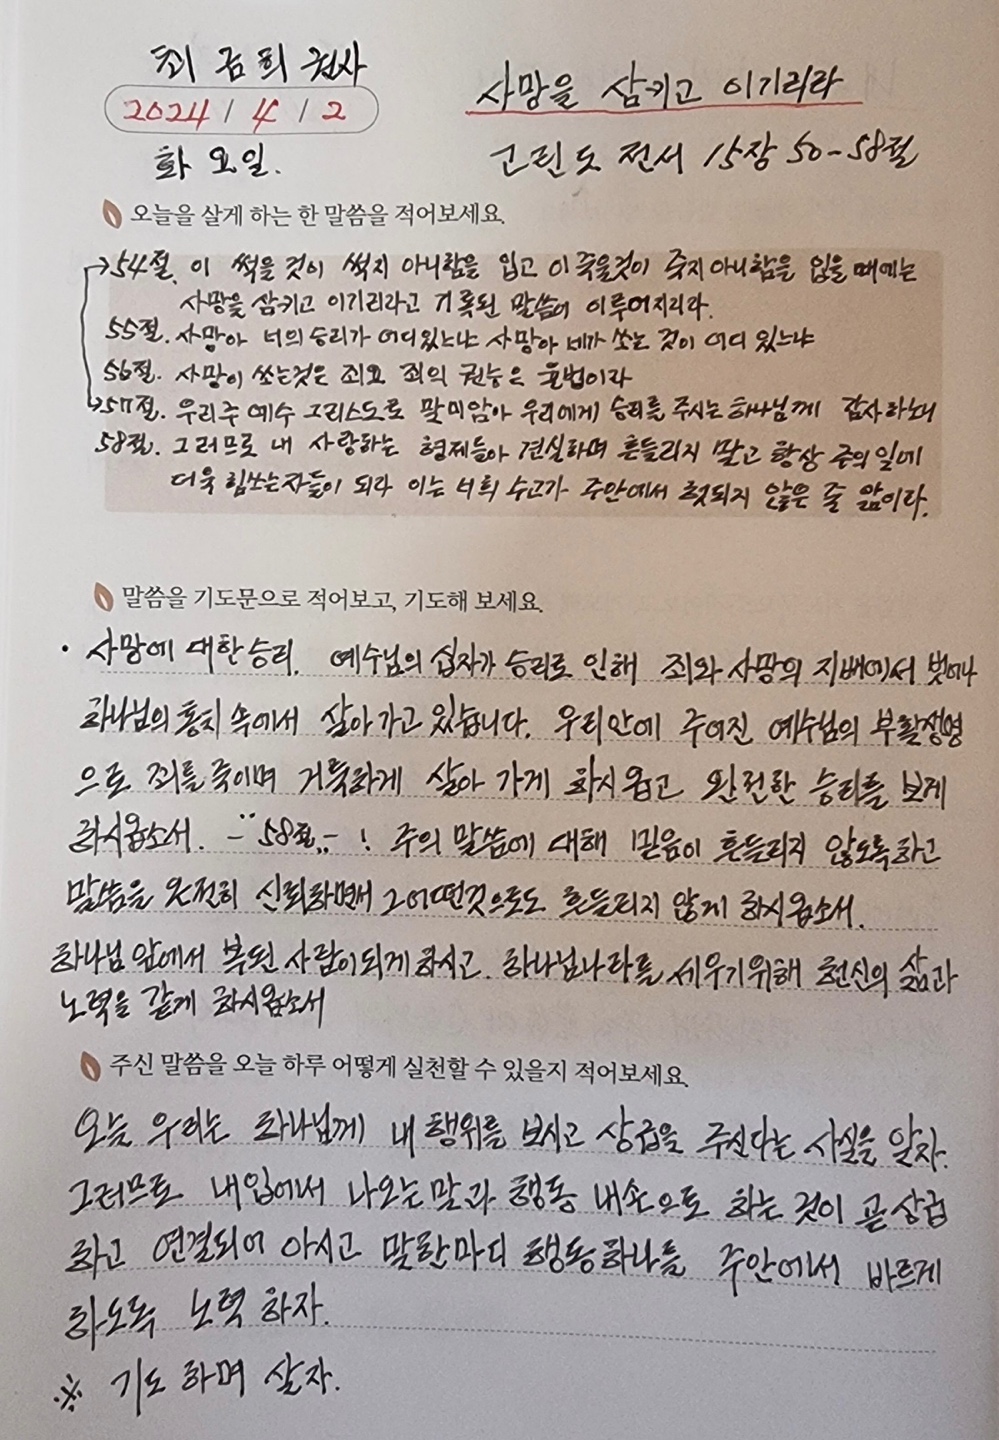 최금희 권사
2024 / 4 / 2
사망을 삼키고 이기리라
화요일.
고린도전서 15장 50-58절
오늘을 살게 하는 한 말씀을 적어보세요.
54절. 이 썩을 것이 썩지 아니함을 입고 이 죽을것이 죽지 아니함을 입을 때에는
사망을 삼키고 이기리라고 기록된 말씀이 이루어지리라.
55절. 사망아 너의 승리가 어디있느냐 사망아 네가 쏘는 것이 어디 있느냐
56절. 사망이 쏘는것은 죄요 죄의 권능은 율법이라
57절. 우리주 예수 그리스도로 말미암아 우리에게 승리를 주시는 하나님께 감사하노니
58절. 그러므로 내 사랑하는 형제들아 견실하며 흔들리지 말고 항상 주의 일에
더욱 힘쓰는자들이 되라 이는 너희 수고가 주안에서 헛되지 않은 줄 앎이라.
말씀을 기도문으로 적어보고, 기도해 보세요.
· 사망에 대한승리. 예수님의 십자가 승리로 인해 죄와 사망의 지배에서 벗어나
하나님의 통치 속에서 살아가고 있습니다. 우리안에 주어진 예수님의 부활생명
으로 죄를 죽이며 거룩하게 살아 가게 하시옵고 완전한 승리를 보게
하시옵소서. -"58절"- ! 주의 말씀에 대해 믿음이 흔들리지 않도록하고
말씀을 온전히 신뢰하면서 그어떤것으로도 흔들리지 않게 하시옵소서.
하나님 앞에서 복된 사람이되게 하시고. 하나님나라를 세우기위해 헌신의 삶과
노력을 같게 하시옵소서
주신 말씀을 오늘 하루 어떻게 실천할 수 있을지 적어보세요.
오늘 우리는 하나님께 내 행위를 보시고 상급을 주신다는 사실을 알자.
그러므로 내입에서 나오는말과 행동 내손으로 하는 것이 곧 상급
하고 연결되어 아시고 말한마디 행동하나를 주안에서 바르게
하도록 노력 하자.
※ 기도 하며 살자.